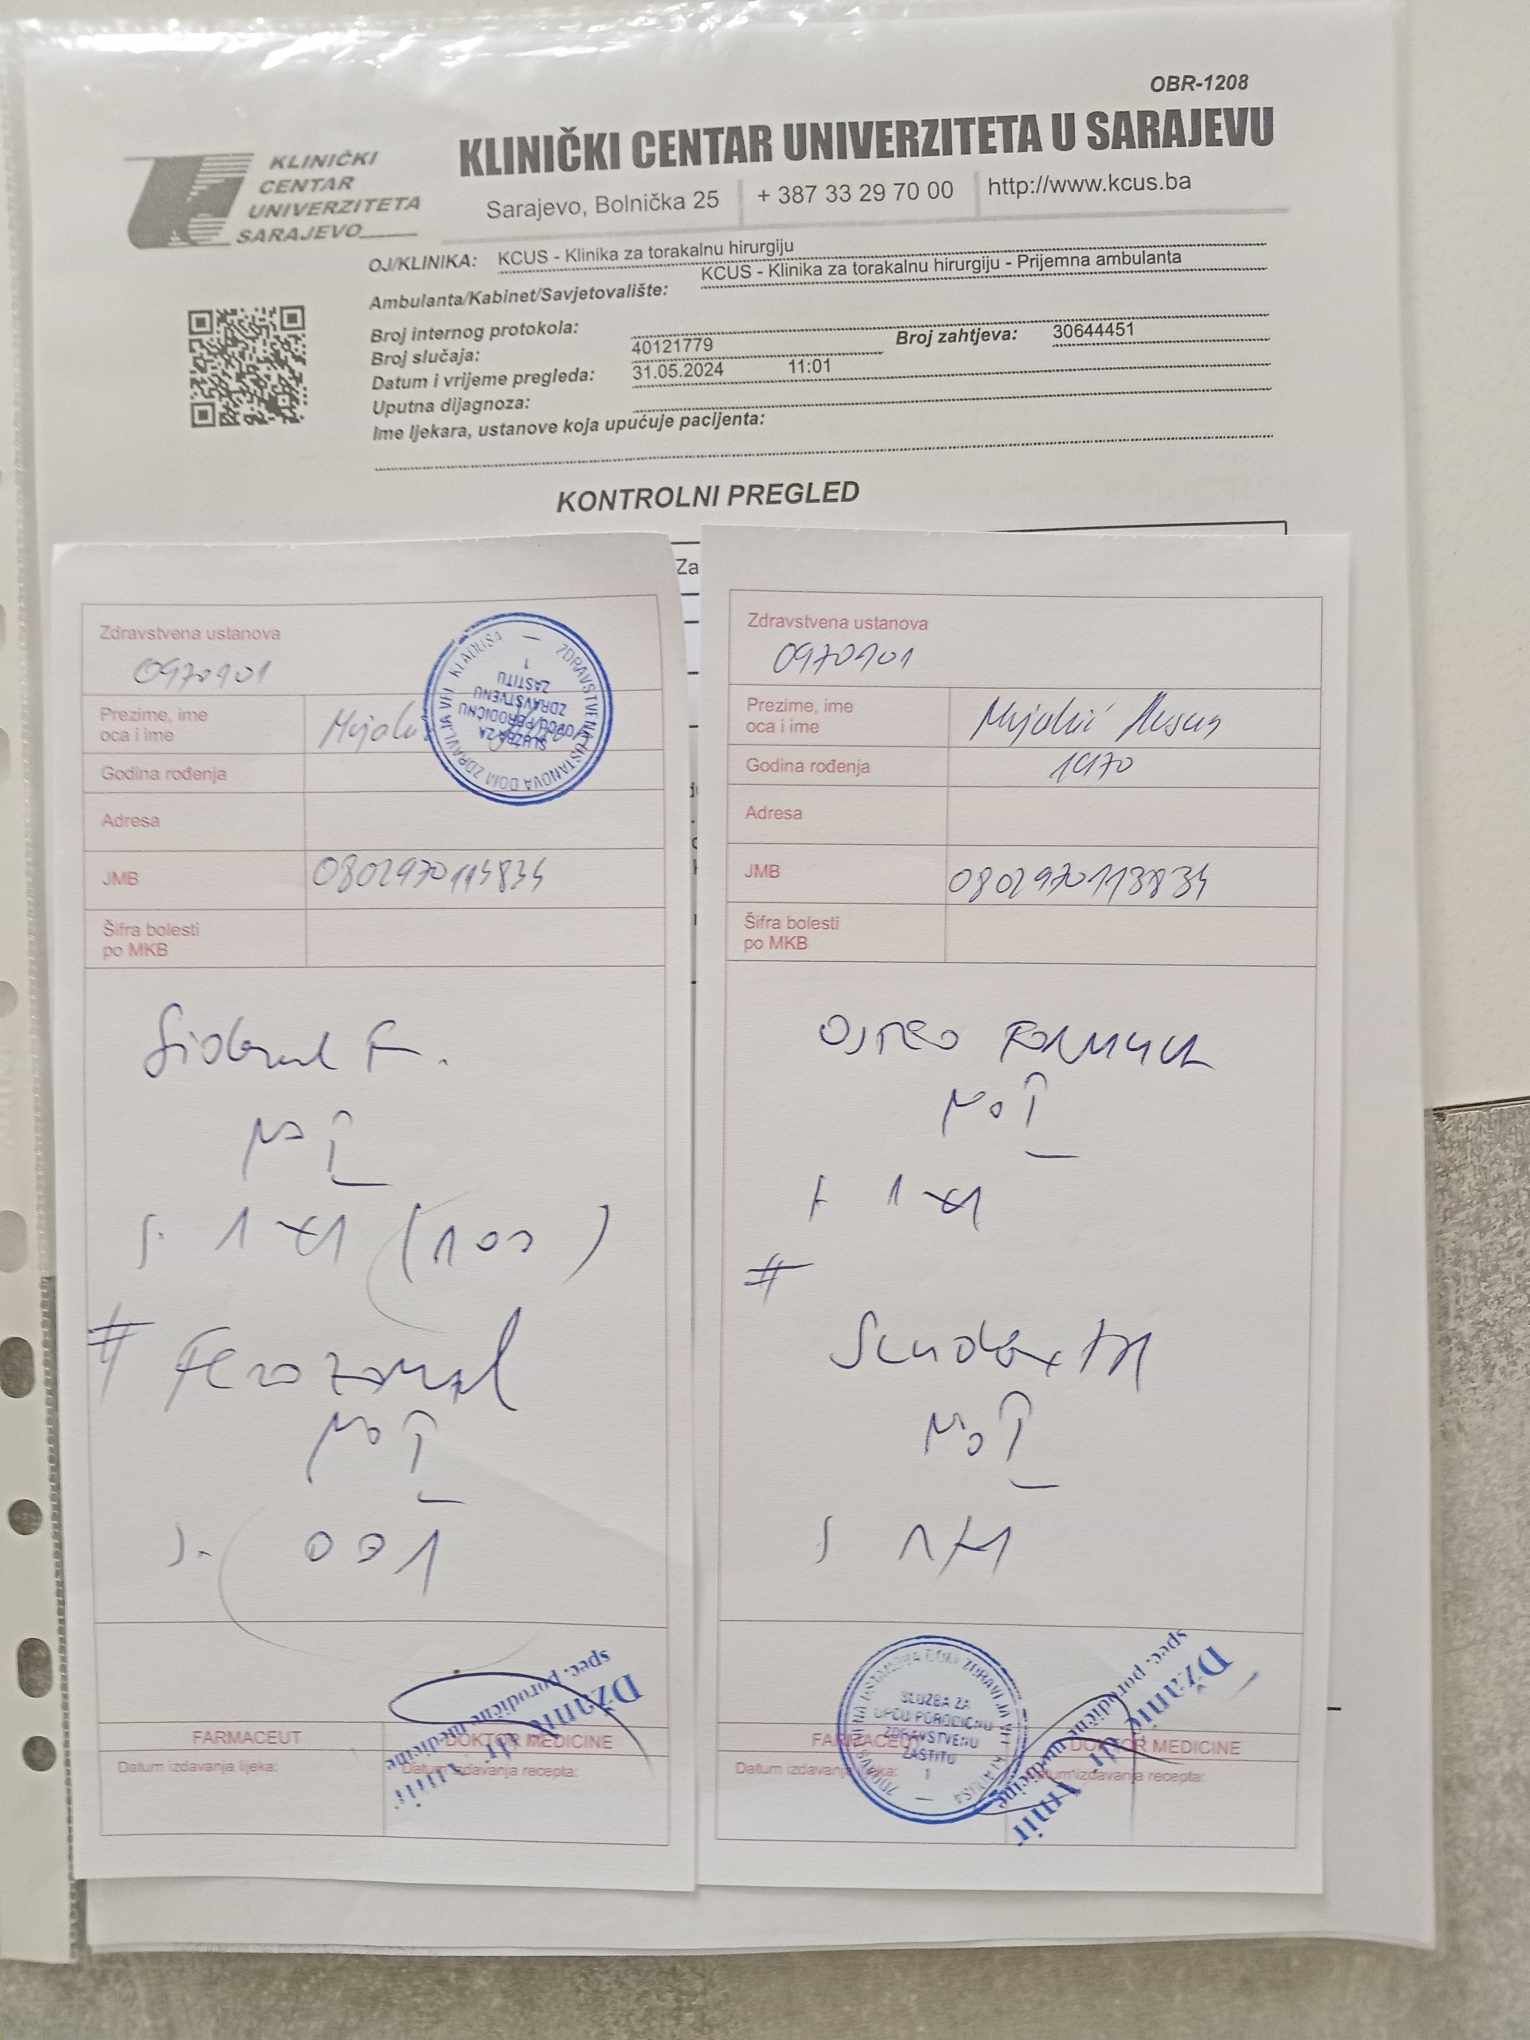 OBR-1208
KLINIČKI CENTAR UNIVERZITETA U SARAJEVU
KLINIČKI
CENTAR
UNIVERZITETA
SARAJEVO
Sarajevo, Bolnička 25 + 387 33 29 70 00 http://www.kcus.ba
OJ/KLINIKA: KCUS - Klinika za torakalnu hirurgiju
Ambulanta/Kabinet/Savjetovalište: KCUS - Klinika za torakalnu hirurgiju - Prijemna ambulanta
Broj internog protokola:
Broj slučaja: 40121779 Broj zahtjeva: 30644451
Datum i vrijeme pregleda: 31.05.2024 11:01
Uputna dijagnoza:
Ime ljekara, ustanove koja upućuje pacijenta:
KONTROLNI PREGLED
Za
Zdravstvena ustanova
0970101
Prezime, ime
oca i ime
Godina rođenja
Adresa
JMB
Šifra bolesti
po MKB
ZDRAVSTVENA USTANOVA DOM ZDRAVLJA VEL. KLADUŠA
SLUŽBA ZA
OPĆU PORODIČNU
ZDRAVSTVENU
ZAŠTITU
1
No I
S. 1x1 (100)
#
No I
S. 001
FARMACEUT DOKTOR MEDICINE
Datum izdavanja lijeka: Datum izdavanja recepta:
Džanić dr Amir
spec. porodične medicine
Zdravstvena ustanova
0970101
Prezime, ime
oca i ime
Godina rođenja 1970
Adresa
JMB
Šifra bolesti
po MKB
No I
1x1
#
No I
S 1x1
ZDRAVSTVENA USTANOVA DOM ZDRAVLJA VEL. KLADUŠA
SLUŽBA ZA
OPĆU PORODIČNU
ZDRAVSTVENU
ZAŠTITU
1
FARMACEUT DOKTOR MEDICINE
Datum izdavanja lijeka: Datum izdavanja recepta:
Džanić dr Amir
spec. porodične medicine